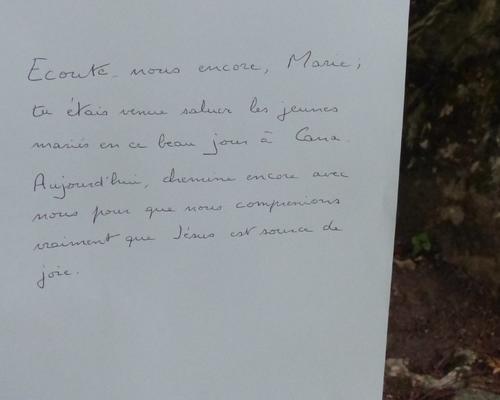 Ecoute-nous encore, Marie ;
tu étais venue saluer les jeunes
mariés en ce beau jour à Cana.
Aujourd'hui, chemine encore avec
nous pour que nous comprenions
vraiment que Jésus est source de
joie.